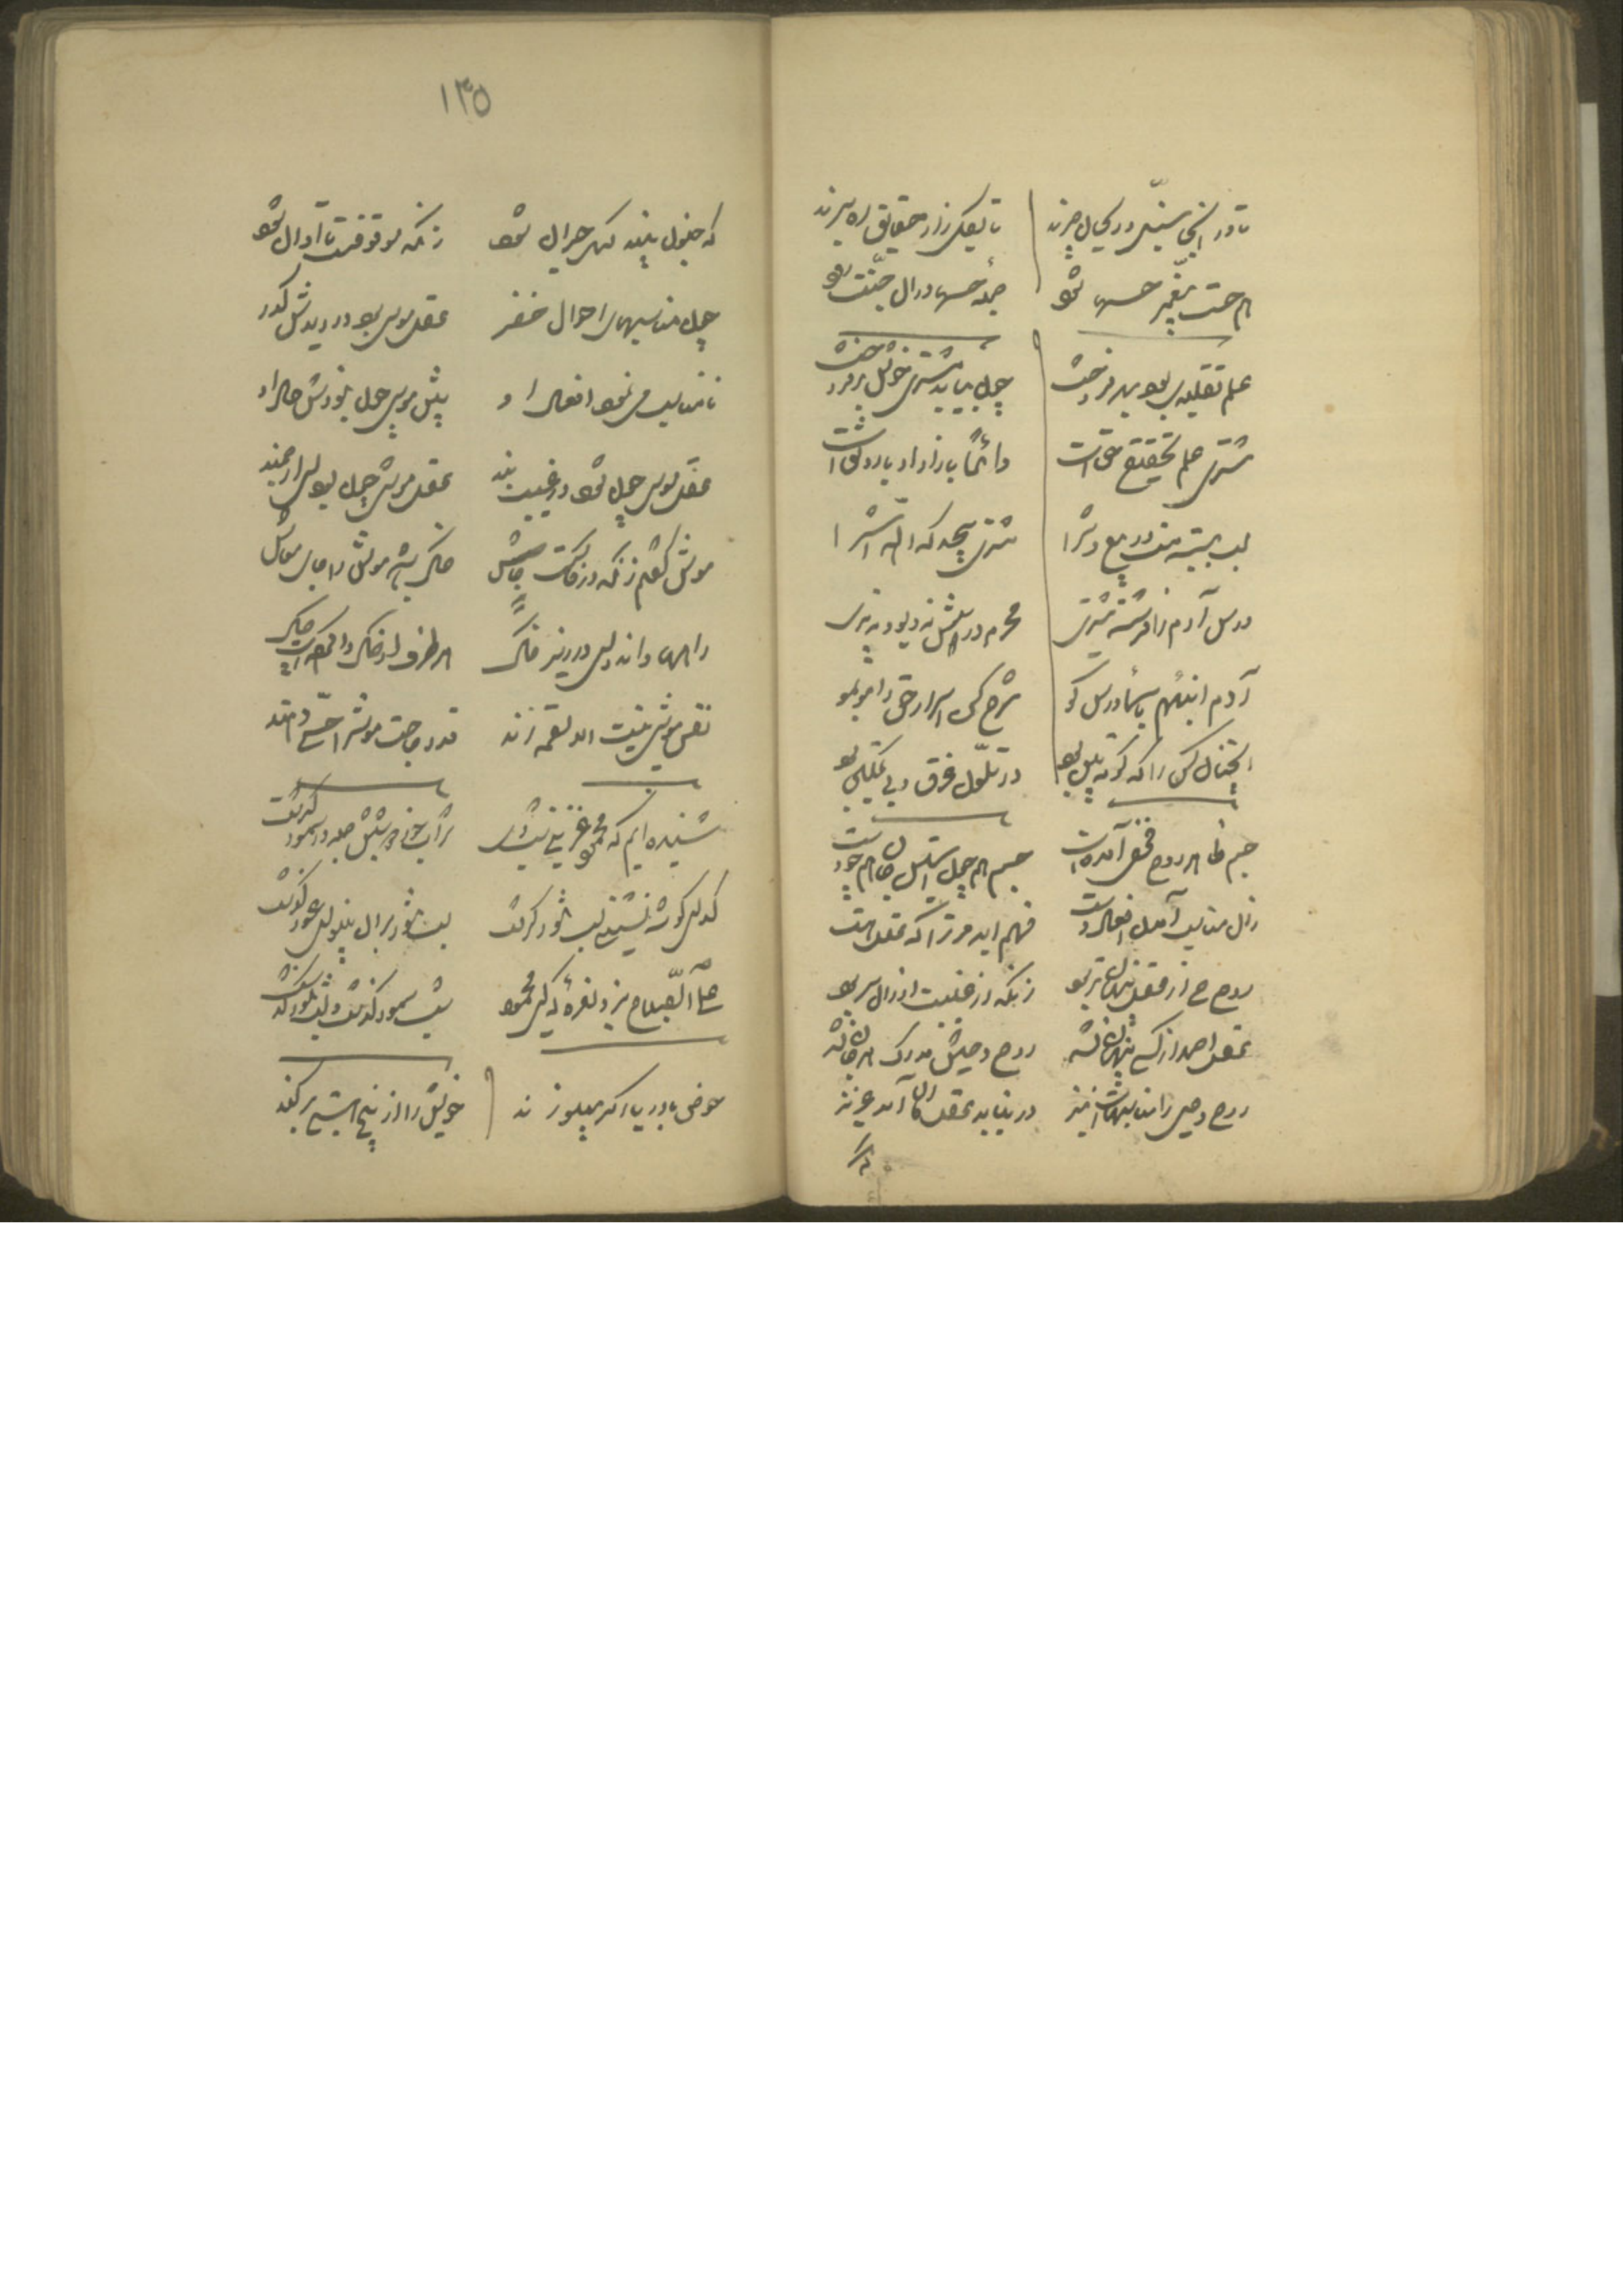 تا در آنجا سنبل و ریحان چرند
تا بگلزار حقایق ره برند
هر حست پیغمبر حسها شود
جمله حسها در آن جنت رود
علم تقلیدی بود بهر فروخت
چون بیابد مشتری خوش بر فروخت
مشتری علم تحقیقی حق است
دائماً بازار او با رونق است
لب ببسته مست در بیع و شرا
مشتری بیحد که الله اشترا
درس آدم را فرشته مشتری
محرم درسش نه دیو و نه پری
آدم انبئهم باسما درس گو
شرح کن اسرار حق را مو بمو
آنچنان کس را که کوته بین بود
در تلون غرق و بی تمکین بود
جسم ظاهر روح مخفی آمده است
جسم همچون آستین جان همچو دست
فهم آید مر ترا که عقل هست
روح وحی از عقل پنهان تر بود
زانکه او غیبست او زان سر بود
عقل احمد از کسی پنهان نشد
روح وحیش مدرک هر جان نشد
روح وحیی را مناسبهاست نیز
در نیابد عقل کان آمد عزیز
گه
۱۳۵
که جنون بیند گهی حیران شود
زانکه موقوفست تا او آن شود
چون مناسبهای احوال خضر
عقل موسی بود در دیدش کدر
نامناسب می نمود افعال او
پیش موسی چون نبودش حال او
عقل موسی چون شود در غیب بند
عقل موشی چون بود ای ارجمند
موش گفتم زانکه در خاکست جاش
خاک باشد موش را جای معاش
راهها داند ولی در زیر خاک
هر طرف او خاک را کرده است چاک
نفس موشی نیست الا لقمه رند
قدر حاجت موش را حسی دهند
شنیده ایم که محمود غزنوی شب دی
شراب خورد و شبش جمله در سمور گذشت
گدای گوشه نشینی لب تنور گرفت
لب تنور بر آن بینوای عور گذشت
علی الصباح بزد نعره که ای محمود
شب سمور گذشت و لب تنور گذشت
عوض با دریا اگر پهلو زند
خویش را از بیخ هستی بر کند